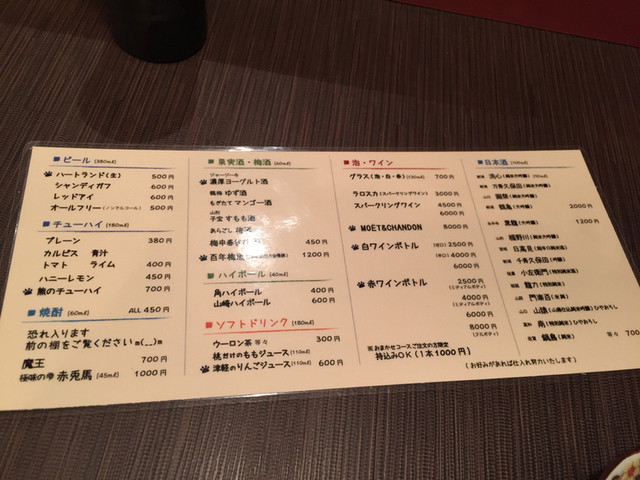 ビール (350㎖)
ハートランド(生) 500円
シャンディガフ 600円
レッドアイ 600円
オールフリー(ノンアルコール) 500円
チューハイ (180㎖)
プレーン 380円
カルピス 青汁
トマト ライム 400円
ハニーレモン 450円
熊のチューハイ 700円
焼酎 (60㎖) ALL 450円
恐れ入ります
前の棚をご覧くださいm(__)m
魔王 700円
極味の雫 赤兎馬 (45㎖) 1000円
果実酒・梅酒 (60㎖)
ジャージー牛
濃厚ヨーグルト酒
鶴梅 ゆず酒
もぎたて マンゴー酒
山形
子宝 すもも酒
あらごし 梅酒
450円
百年梅酒 1200円
ハイボール (40㎖)
角ハイボール 400円
山崎ハイボール 600円
ソフトドリンク (180㎖)
ウーロン茶 等々 300円
桃だけのももジュース(110㎖) 400円
津軽のりんごジュース(110㎖) 600円
泡・ワイン
グラス(泡・白・赤)(130㎖) 700円
ラロスカ(スパークリングワイン) 3000円
スパークリングワイン 4500円
6000円
MOET&CHANDON 8000円
白ワインボトル (甘口) 2500円
(辛口) 4000円
6000円
赤ワインボトル 2500円
(ミディアムボディ)
4000円
(ミディアムボディ)
6000円
8000円
(フルボディ)
※おまかせコースご注文の方限定
持込みOK(1本1000円)
日本酒 (100㎖)
洗心(純米大吟醸)(90㎖)
万寿久保田(純米大吟醸)
鍋島(大吟醸) 2000円
黒龍(大吟醸) 1200円
楯野川(純米大吟醸)
日高見(純米吟醸)
千寿久保田(吟醸)
小左衛門(特別純米)
龍力(特別純米)
山猿
南(特別純米)ひやおろし
鍋島(純米) 等々 700円
(お好みがあれば仕入れ努力いたします)